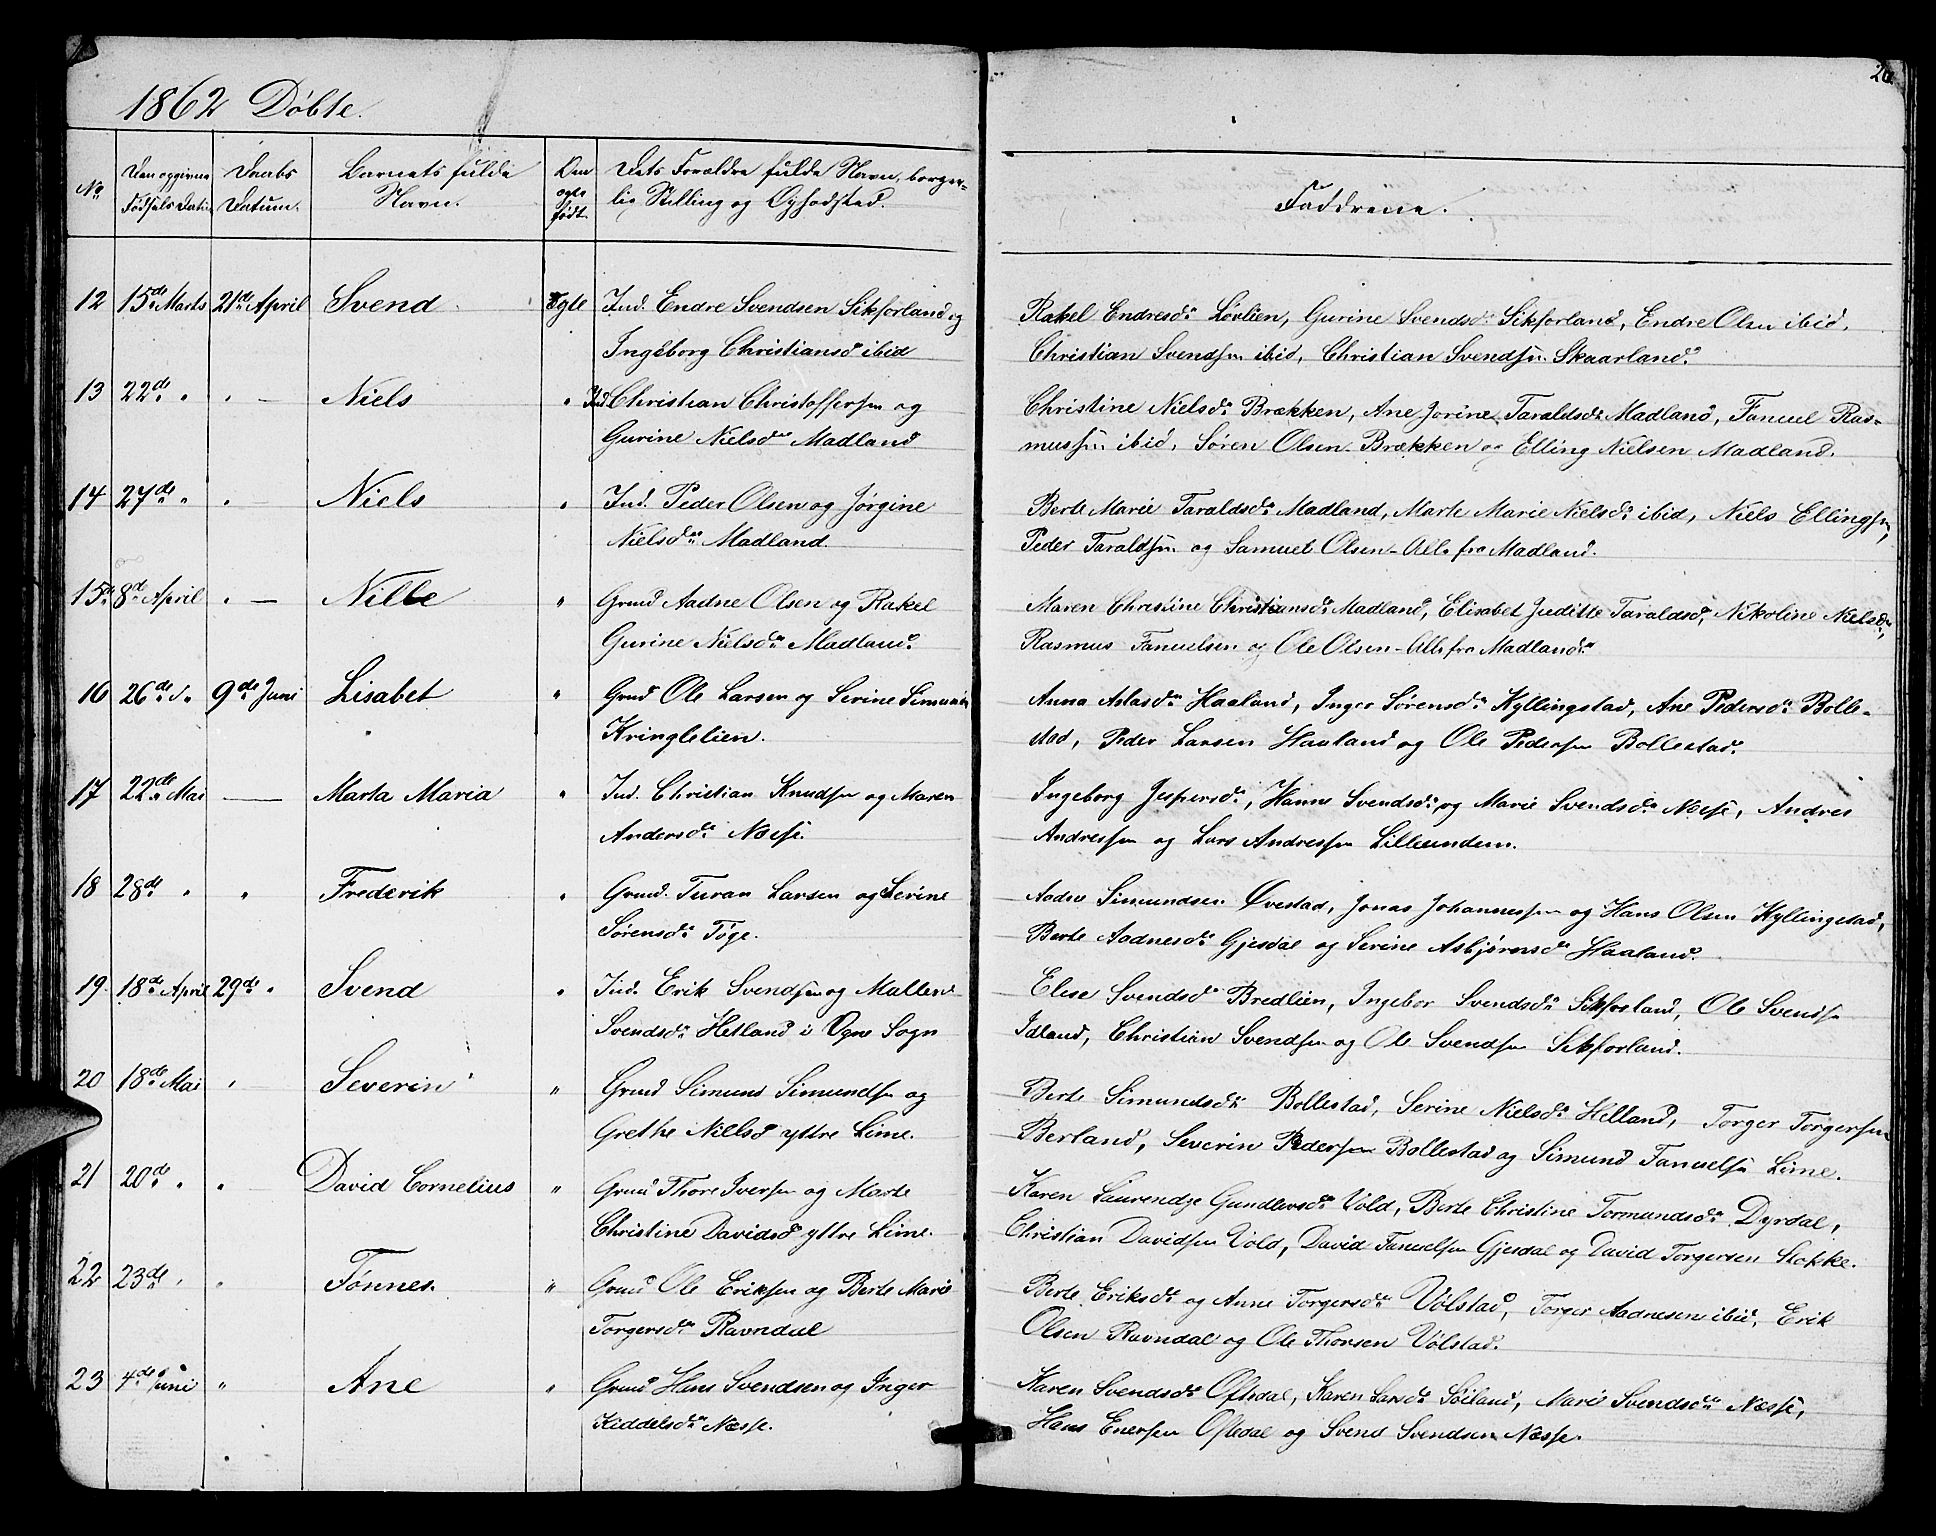 26
1862 Döbte.
No
Den opgivne Födsels Datum
Daabs Datum.
Barnets fulde Navn.
Om ægte födt.
Dets Forældre fulde Navn, borger-
lig Stilling og Opholdsted.
Faddrene.
12 15de Marts 21de April Svend Ægte Ind. Endre Svendsen Sikforland og
Ingeborg Christiansd ibid
Rakel Endresdr Løvlien, Gurine Svendsdr Sikforland, Endre Olsen ibid,
Christian Svendsen ibid, Christian Svendsen Skaarland.
13 22de " " — Niels " Ind Christian Christoffersen og
Gurine Nielsdr Madland
Christine Nielsdr Brækken, Ane Jorine Taraldsdr Madland, Fanuel Ras-
mussen ibid, Søren Olsen Brækken og Elling Nielsen Madland.
14 27de " " — Niels " Ind. Peder Olsen og Jørgine
Nielsdr Madland.
Berte Marie Taraldsdr Madland, Marte Marie Nielsdr ibid, Niels Ellingsen,
Peder Taraldsen og Samuel Olsen - Alle fra Madland.
15 8de April " — Nille " Grmd Aadne Olsen og Rakel
Gurine Nielsdr Madland
Maren Christine Christiansdr Madland, Elisabet Juditte Taraldsd, Nikoline Nielsdr,
Rasmus Fanuelsen og Ole Olsen - Alle fra Madland
16 26de d. 9de Juni Lisabet " Grmd Ole Larsen og Serine Simunsdr
Kringlelien.
Anna Aslasdr Haaland, Inger Sørensdr Kyllingstad, Ane Pedersdr Bolle-
stad, Peder Larsen Haaland og Ole Pedersen Bollestad.
17 22de Mai — Marta Maria " Ind. Christian Knudsen og Maren
Andersdr Næsse.
Ingeborg Jespersdr, Hanne Svendsdr og Marie Svendsdr Næsse, Andres
Andressen og Lars Andressen Lilleundem.
18 28de " " Frederik " Grmd. Turan Larsen og Serine
Sørensdr Töge.
Aadne Simundsen Øvestad, Jonas Johannessen og Hans Olsen Kyllingstad,
Berte Aadnesdr Gjesdal og Serine Asbjørensdr Haaland.
19 18de April 29de " Svend " Ind. Erik Svendsen og Mallene
Svendsdr Hetland i Ogne Sogn
Elese Svendsdr Bredlien, Ingebor Svendsdr Sikforland, Ole Svendsen
Idland, Christian Svendsen og Ole Svendsen Sikforland.
20 18de Mai " Severin " Grmd Simund Simundsen og
Grethe Nielsd yttre Lime.
Berte Simundsdr Bollestad, Serine Nielsdr Helland, Torger Torgersen
Berland, Severin Pedersen Bollestad og Simund Fanuelsen Lime.
21 20de " " David Cornelius " Grmd Thore Iversen og Marte
Christine Davidsd yttre Lime.
Karen Laurendze Gundlersdr Vold, Berte Christine Tormundsdr Dyrdal,
Christian Davidsen Vold, David Fanuelsen Gjesdal og David Torgersen Stokke.
22 23de " " Tønnes. " Grmd Ole Eriksen og Berte Marie
Torgersdr Ravndal
Berte Eriksdr og Anne Torgersdr Vølstad, Torger Aadnesen ibid, Erik
Olsen Ravndal og Ole Thorsen Vølstad.
23 4de Juni " Ane " Grmd Hans Svendsen og Inger
Kiddelsdr Næsse.
Karen Svendsdr Oftedal, Karen Larsdr Søiland, Marie Svendsdr Næsse,
Hans Enersen Oftedal og Svend Svendsen Næsse.